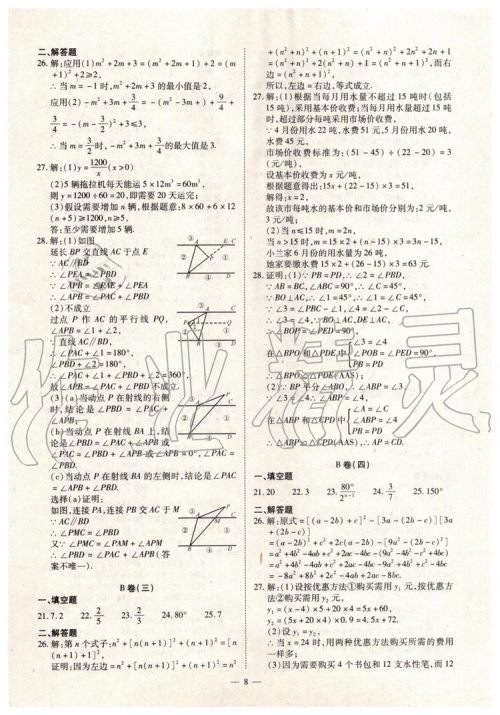 二、解答题
26. 解:应用(1)m²+2m+3=(m²+2m+1)+2=(m
+1)²+2≥2,
∴当 m=-1 时,m²+2m+3 的最小值是 2.
应用(2)-m²+3m+3/4=-(m²-3m+)+9/4+
3/4=-(m-3/2)²+3≤3,
∴当 m=3/2 时,-m²+3m+3/4 的最大值是 3.
27. 解:(1)y=1200/x(x>0)
(2)5 辆拖拉机每天能运 5×12m³=60m³,
则 y=1200÷60=20,即需要 20 天运完;
(3)假设需要增加 n 辆,根据题意:8×60+6×12
(n+5)≥1200,n≥5.
答:至少需要增加 5 辆.
28. 解:(1)如图
延长 BP 交直线 AC 于点 E
∵AC∥BD
∴∠PEA=∠PBD
∵∠APB=∠PAE+∠PEA
∴∠APB=∠PAC+∠PBD
(2)不成立
过点 P 作 AC 的平行线 PQ,
∠APB=∠1+∠2,
∵直线 AC∥BD,
∴∠PAC+∠1=180°,
∠PBD+∠2=180°,
∴∠PAC+∠1+∠PBD+∠2=360°,
故∠APB=∠PAC+∠PBD 不成立.
(3)(a)当动点 P 在射线的右侧
时,结论是∠PBD=∠PAC
+∠APB.
(b)当动点 P 在射线 BA 上,结
论是∠PBD=∠PAC+∠APB 或
∠PAC=∠PBD+∠APB 或∠APB=0°,∠PAC=
∠PBD.
(c)当动点 P 在射线 BA 的左侧时,结论是∠PAC
=∠APB+∠PBD.
选择(a)证明:
如图,连接 PA,连接 PB 交 AC 于 M
∵AC∥BD
∴∠PMC=∠PBD
又∵∠PMC=∠PAM+∠APM
∴∠PBD=∠PAC+∠APB(答
案不唯一).
B 卷(三)
一、填空题
21. 7.2 22. 2/5 23. 2/3 24. 80° 25. 7
二、解答题
26. 解:第 n 个式子:n²+[n(n+1)]²+(n+1)²=[n
(n+1)+1]²
证明:因为左边=n²+[n(n+1)]²+(n+1)²=n²
+(n²+n)²+(n+1)²=(n²+n)²+2n²+2n+1
=(n²+n)²+2(n²+n)+1=(n²+n+1)²,而右
边=(n²+n+1)²,
所以,左边=右边,等式成立.
27. 解:(1)根据当每月用水量不超过 15 吨时(包括
15 吨),采用基本价收费;当每月用水量超过 15 吨
时,超过部分每吨采用市场价收费.
∵4 月份用水 22 吨,水费 51 元,5 月份用水 20 吨,
水费 45 元,
市场价收费标准为:(51-45)÷(22-20)=3
(元/吨),
设基本价收费为 x 元/吨,
根据题意得出:15x+(22-15)×3=51,
解得:x=2,
故该市每吨水的基本价和市场价分别为:2 元/吨,
3 元/吨;
(2)当 n≤15 时,m=2n,
当 n>15 时,m=15×2+(n-15)×3=3n-15,
小兰家 6 月份的用水量为 26 吨,
她家要缴水费 15×2+(26-15)×3=63 元.
28. 证明:(1)∵PB=PD,∴∠2=∠PBD,
∵AB=BC,∠ABC=90°,∴∠C=45°,
∵BO⊥AC,∴∠1=45°,∴∠1=∠C=45°,
∵∠3=∠PBC-∠1,∠4=∠2-∠C,
∴∠3=∠4,∵BO⊥AC,DE⊥AC,
∴∠BOP=∠PED=90°,
在△BPO 和△PDE 中{∠3=∠4
∠BOP=∠PED=90°
BP=PD
∴△BPO≌△PDE(AAS);
(2)∵BP 平分∠ABO,∴∠ABP=∠3,
∵∠3=∠4,∴∠ABP=∠4
在△ABP 和△CPD 中{∠A=∠C
∠ABP=∠4
PB=PD
∴△ABP≌△CPD(AAS),∴AP=CD.
B 卷(四)
一、填空题
21. 20 22. 3 23. 80°/2ⁿ⁻¹ 24. 3/7 25. 150°
二、解答题
26. 解:原式=[(a-2b)+c]²-[3a-(2b-c)][3a
+(2b-c)]
=(a-2b)²+c²+2c(a-2b)-[9a²-(2b-c)²]
=a²+4b²-4ab+c²+2ac-4bc-(9a²-4b²-c²+4bc)
=a²+4b²-4ab+c²+2ac-4bc-9a²+4b²+c²-4bc
=-8a²+8b²+2c²-4ab+2ac-8bc.
27. 解:(1)设按优惠方法①购买需用 y₁ 元,按优惠方
法②购买需用 y₂ 元,
y₁=(x-4)×5+20×4=5x+60,
y₂=(5x+20×4)×0.9=4.5x+72.
(2)设 y₁=y₂,
∴当 x=24 时,用两种优惠方法购买所需的费用
一样多;
(3)因为需要购买 4 个书包和 12 支水性笔,而 12
— 8 —